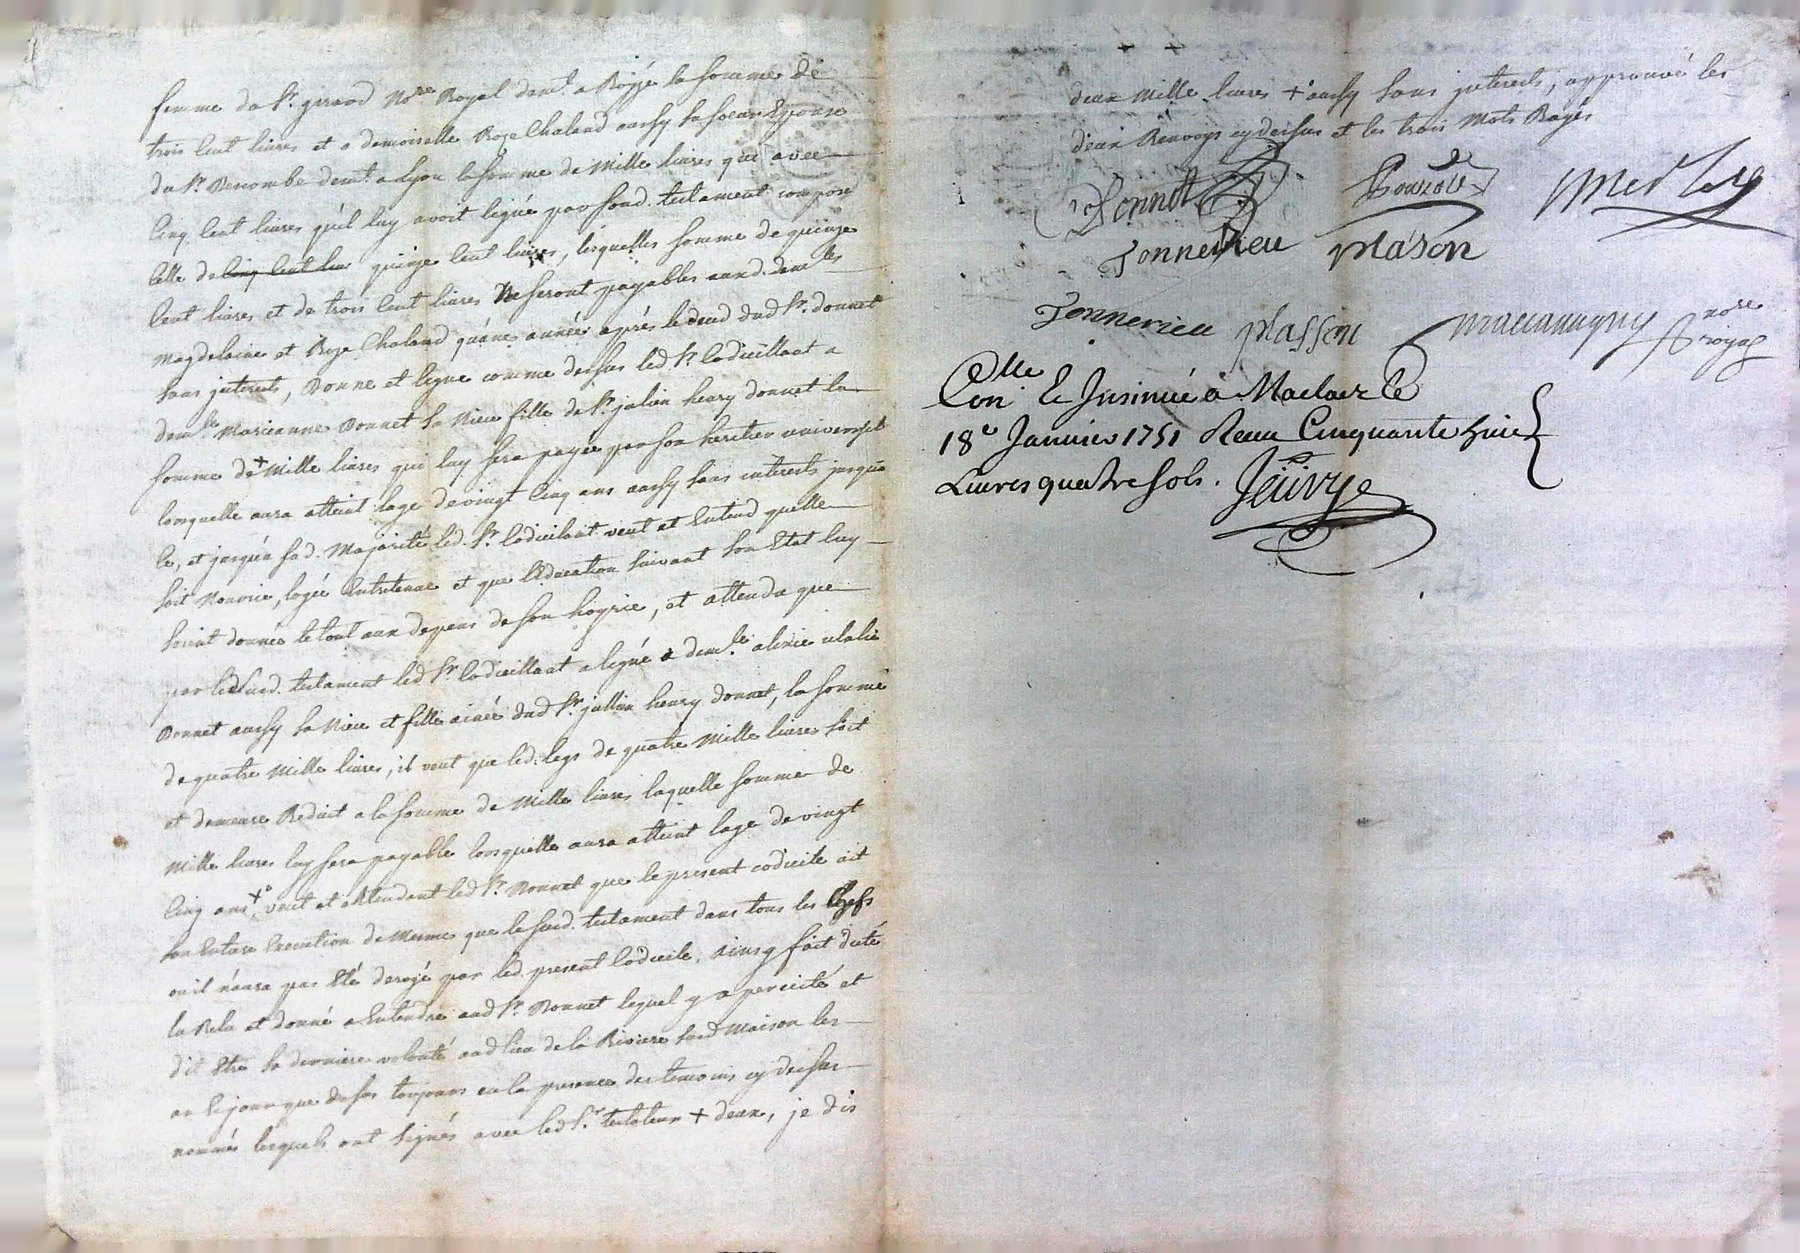 femme du Sr. giraud Nore. Royal demt. a Bojeé la somme de
trois Cent livres et a demoiselle Roze Chaland aussy sa soeur Epouse
du Sr. Descombe demt. a Lyon la somme de Mille livres qui avec
Cinq Cent livres qu'il luy avoit legué par sond. testament compose
Celle de cinq Cent livres quinze Cent livres, lesquelles somme de quinze
Cent livres et de trois Cent livres Ne seront payables auxd. demlles
magdelaine et Roze Chaland qu'une année aprés le deced dud Sr. donnet
sans jnterests, Donne et legue comme dessus led Sr. Codicillant a
demlle Marieanne Donnet sa Niece fille de Sr. julien henry donnet la
somme de + Mille livres qui luy sera payée par son heritier universel
lorsquelle aura atteint lage de vingt Cinq ans aussy sans interests jusqua
Ce, et jusqua sad. Majorité led. Sr. Codicilant veut et Entend quelle
soit Nourrie, logée Entretenue et que l'Education suivant son Etat luy
soint donnée le tout aux depens de son hoyrie, et attendu que
par led. testament led Sr. Codicillant a legué a demlle alexie
Donnet aussy sa Niece et fille ainée dud Sr. jullien henry donnet, la somme
de quatre Mille livres, il veut que led. legs de quatre Mille livres soit
et demeure Reduit a la somme de Mille livres laquelle somme de
Mille livres luy sera payable lorsquelle aura atteint lage de vingt
Cinq ans +, veut et Entendant led Sr. Donnet que le present codicile ait
son Entiere Execution de Mesme que le susd. testament dans tous les Chefs
ou il n'aura pas Eté derogé par led. present Codicile, ainsy fait dicté
la Relu et donné a Entendre aud Sr. Donnet lequel y a percisté et
dit Etre sa derniere volonté aud lieu de la Riviere susd Maison les
an & jour que dessus toujours en la presence des temoins cy dessus
nommés lesquels ont signés avec led Sr. testateur + deux, je dis
deux Mille livres + aussy sans jnterests, approuvé les
deux Renvoys cy dessus et les trois Mots Rayés
Donnet
Tonnerieu plason
Tonnerieu plasson nore royal
Con lle & Jnsinué a Maclas le
18e Janvier 1751 Receu Cinquante huit
Livres quatre sols.